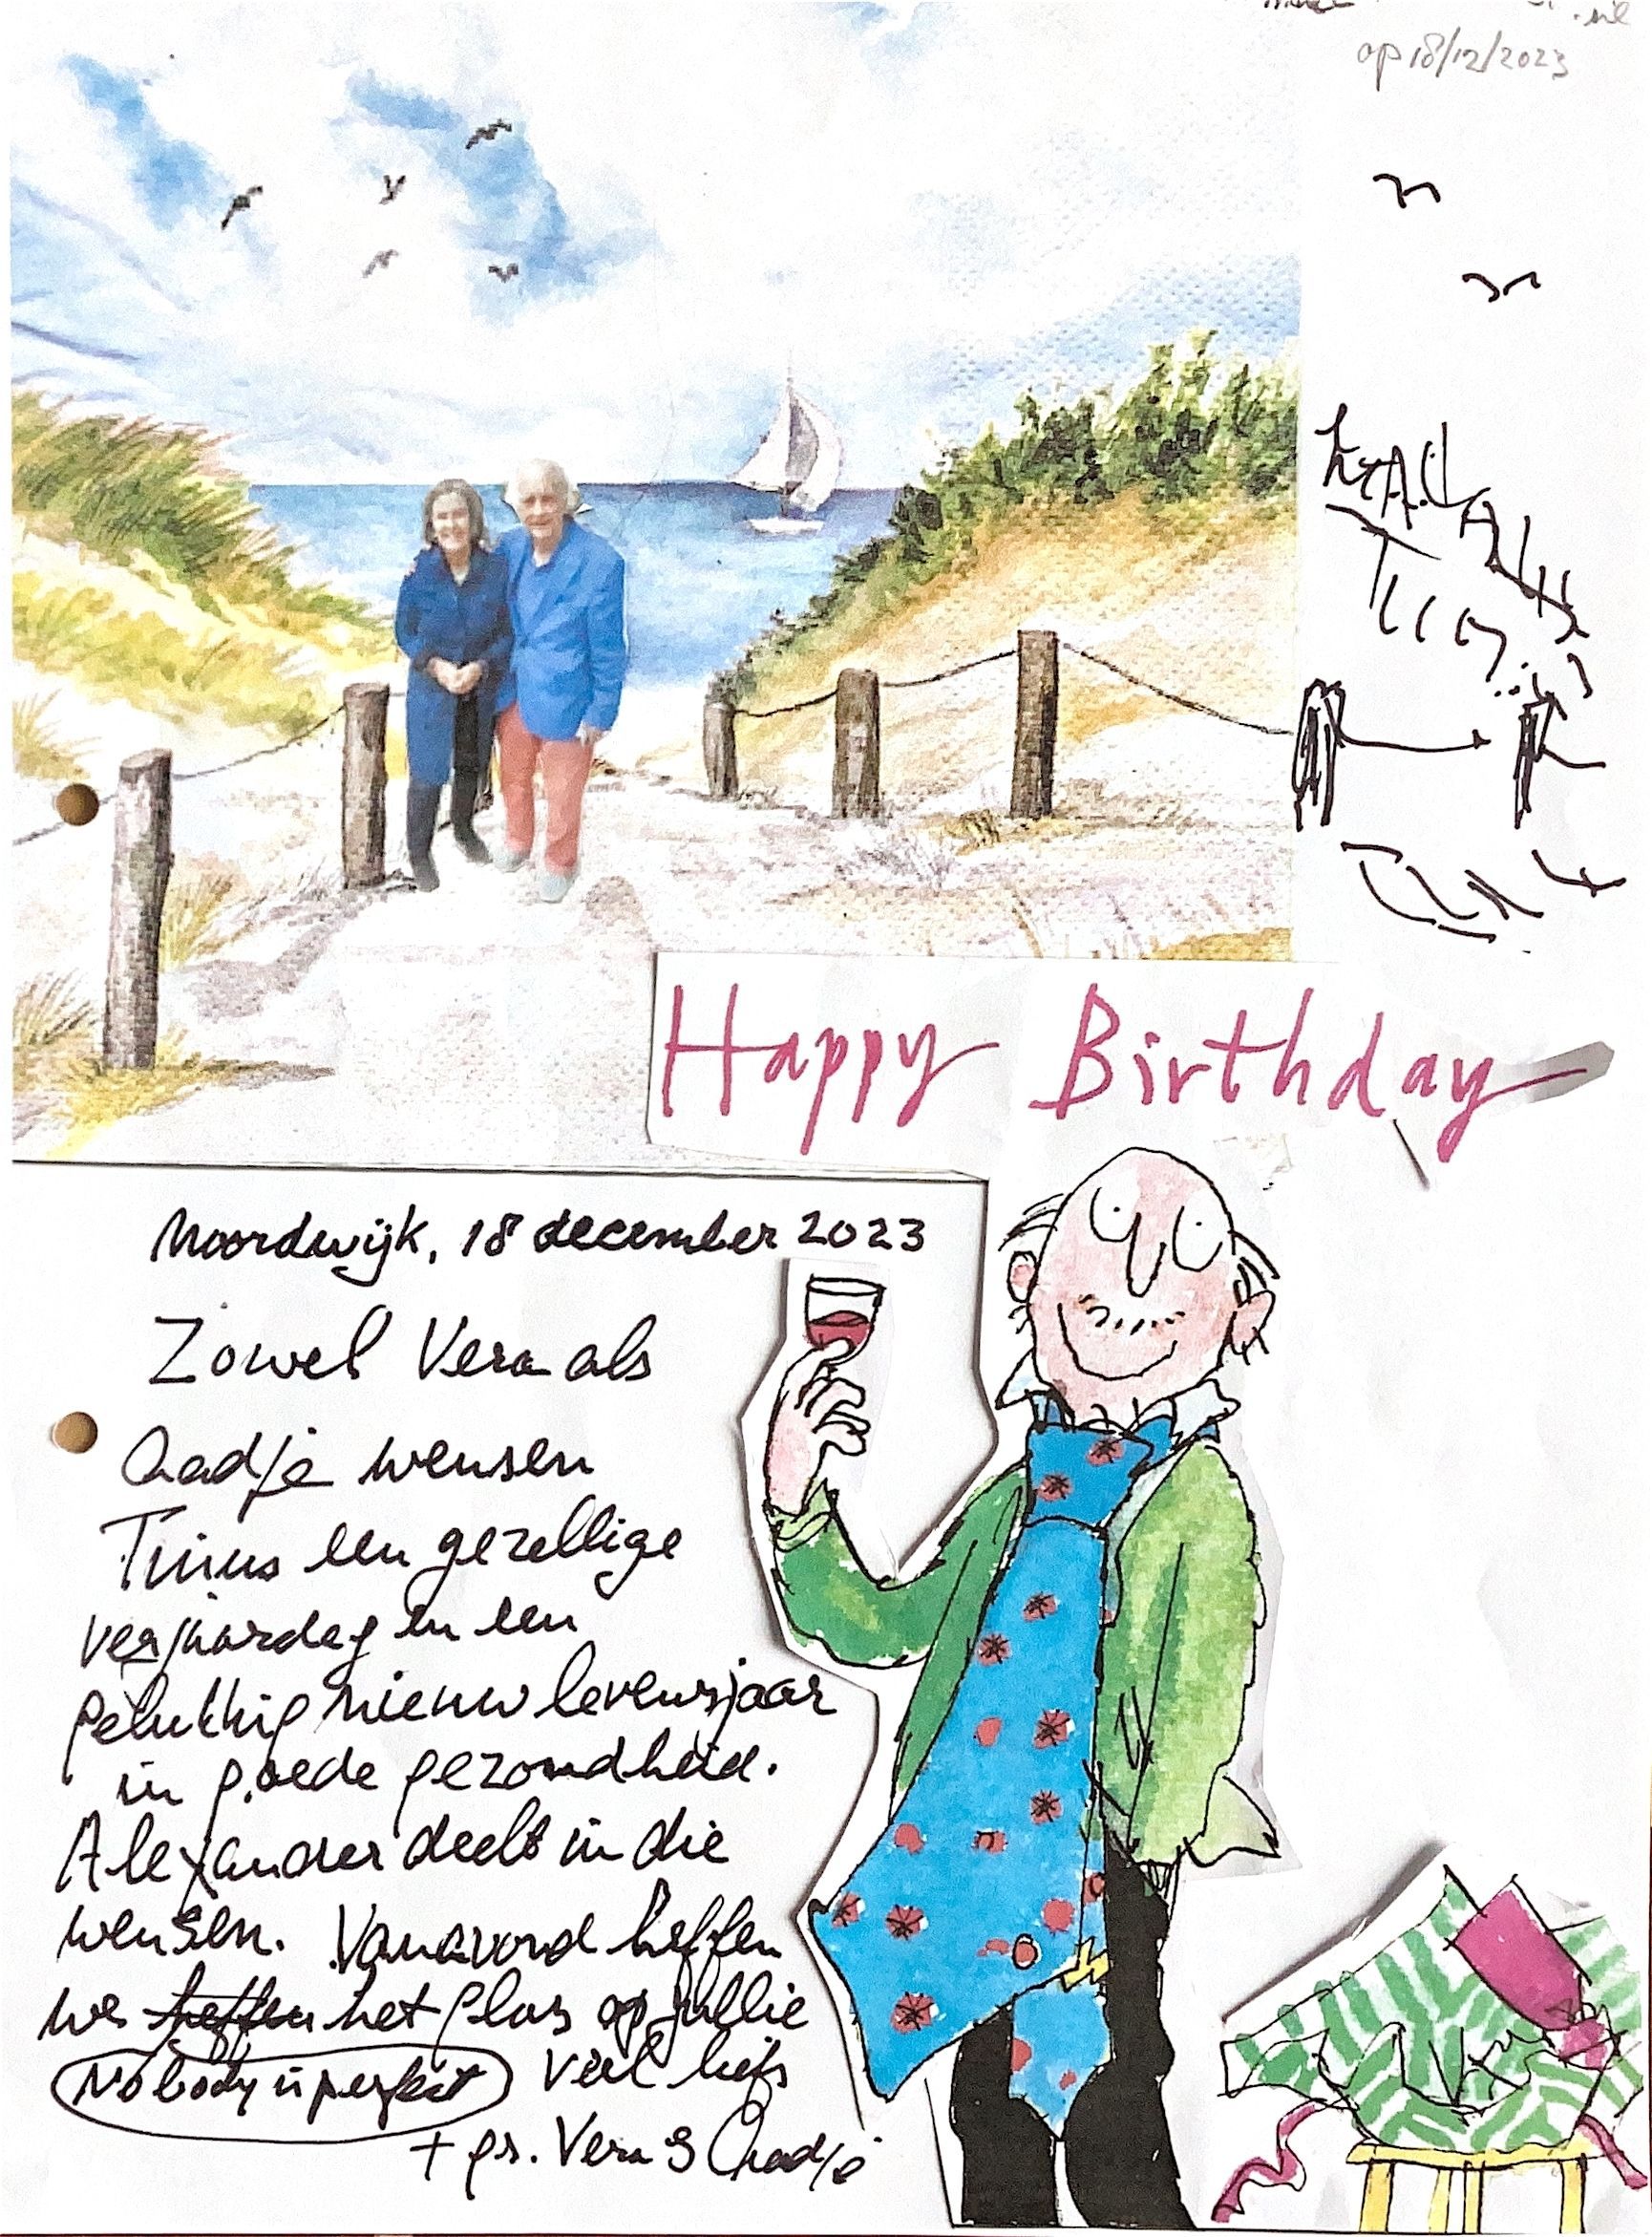 op 18/12/2023
Happy Birthday
Noordwijk, 18 december 2023
Zowel Vera als
Aadje wensen
Tinus een gezellige
verjaardag en een
gelukkig nieuw levensjaar
in goede gezondheid.
Alexander deelt in die
wensen. Vanavond heffen
we heffen het glas op jullie
Nobody is perfect veel liefs
+ gr. Vera & Aadje